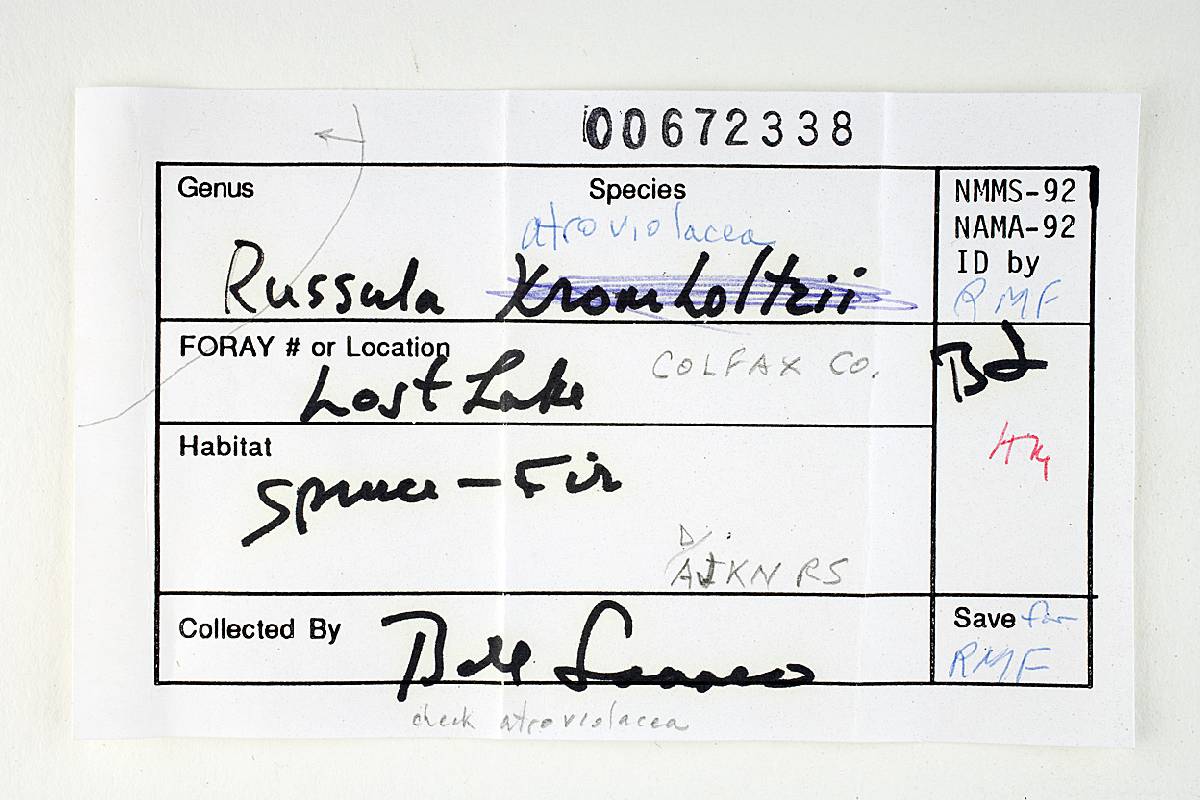 00672338
Genus Species NMMS-92
atroviolacea NAMA-92
ID by
Russula Kromholtzii RMF
FORAY # or Location COLFAX CO. Bd
Lost Lake
Habitat
Spruce - Fir
D
AJKN RS
Collected By Bill Save for
RMF
check atroviolacea